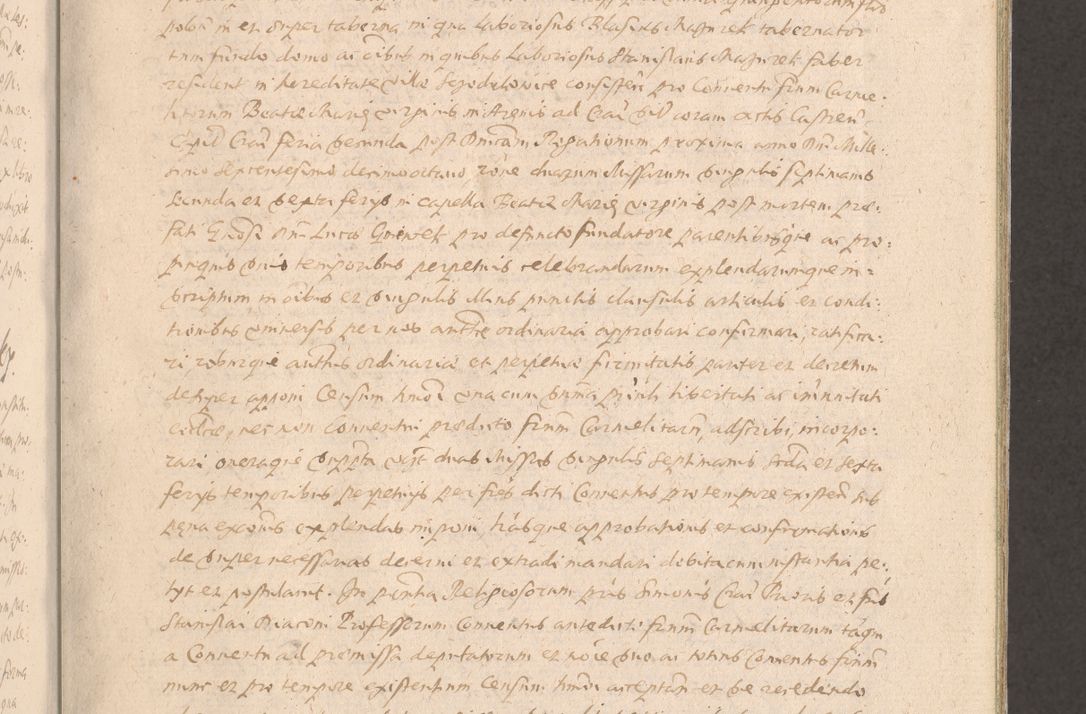 polon in et super taberna in qua Laboriosus Blasius Mazurek tabernator
tum fundo domo ac oibus in quibus Laboriosus Stanislaus Mazurek faber
resident in hereditate villa consisten pro Conventu frum Carme:
litarum Beatæ Mariæ virginis in Arenis ad Cra͠ coram Actis Castren
Cra͠ feria secunda post Dnicam Rogationum proxima anno Dni Mille:
simo Septentesimo decimo octavo, rone duarum Missarum singulis septimanis
secunda et sexta ferijs in capella Beatæ Mariæ virginis post mortem præ:
fati Gnosi Dni Lucæ pro defuncto fundatore parentibusque ac pro:
pinquis suis temporibus perpetuis celebrandarum explendarumque in:
scriptum in oibus et singulis illius punctis clausulis articulis et condi:
tionibus universis per nos authte ordinaria approbari confirmari, ratifica:
ri roburque authtis ordinariæ et perpetuæ firmitatis pariter et decretum
desuper apponi Censum hmoi una cum summa libertati ac immunitati
ecclicæ, nec non conventui prædicto frum Carmelitarum, adscribi, incorpo:
rari oneraque duas Missas singulis septimanis secda et sexta
ferijs temporibus perpetuis per fres dicti Conventus pro tempore existen sub
pæna exconis explendas imponi, lrasque approbationis et confirmationis
desuper necessarias decerni et extradi mandari debita cum instantia pe:
tijt et postulavit. In pñtia Religiosorum Simonis Prioris et
Stanislai Diaconi Professorum Conventus antedicti frum Carmelitarum
a Conventu ad præmissa deputatorum et noie suo ac totius Conventus frum
nunc et pro tempore existentium Censum hmoi acceptan et se recedendo